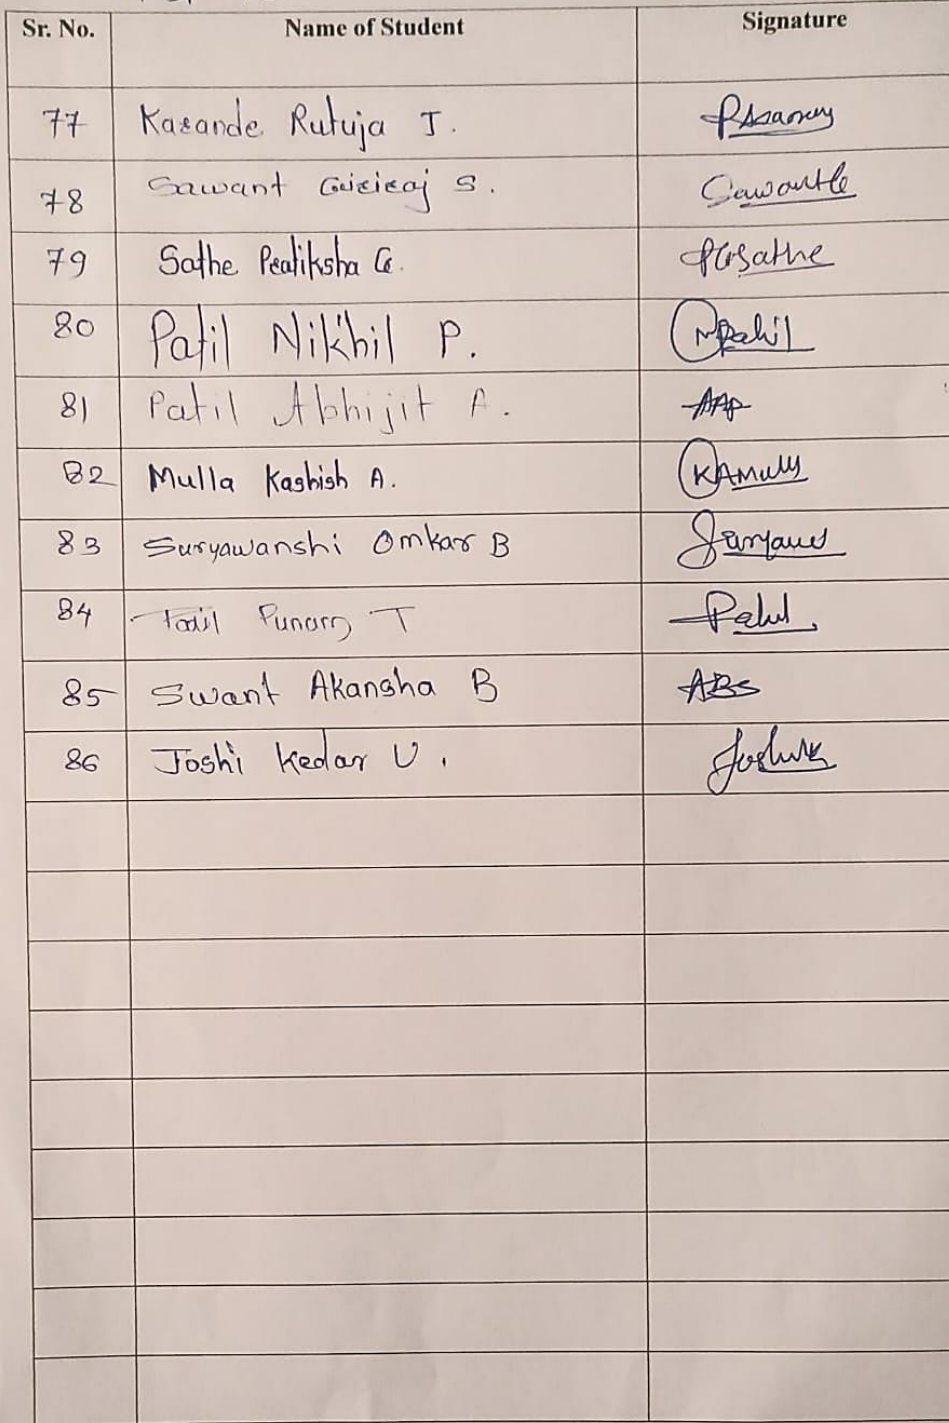 Sr. No. Name of Student Signature
77 Kazande Rutuja J.
78 Sawant Girizaj S. Sawant
79 Sathe Pratiksha G. PGSathe
80 Patil Nikhil P. NPatil
81 Patil Abhijit A. AAP
82 Mulla Kashish A. KAMully
83 Suryawanshi Omkar B
84 Patil T
85 Swant Akansha B ABS
86 Joshi Kedar U.